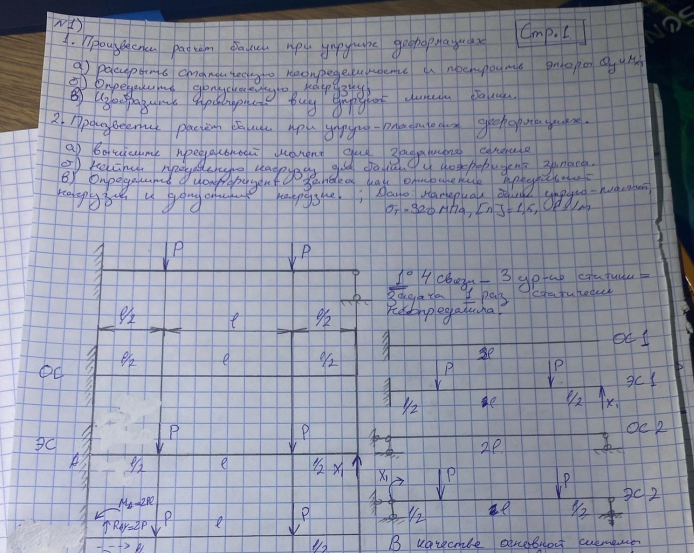 №1)
Стр.1
1. Произвести расчёт балки при упругих деформациях
а) раскрыть статическую неопределимость и построить эпюры Qy и Mx;
б) Определить допускаемую нагрузку;
в) Изобразить примерный вид упругой линии балки.
2. Произвести расчёт балки при упруго-пластических деформациях.
а) вычислить предельный момент для заданного сечения
б) Найти предельную нагрузку для балки и коэффициент запаса.
в) Определить коэффициент запаса как отношение предельной
нагрузки и допустим нагрузке. ; Дано: материал балки упруго-пластичн,
σт=320 МПа, [n]=1,5, l=1м
P P
1° 4 связи – 3 ур-ие статики =
Задача 1 раз статически
неопределима.
l/2 l l/2
ОС l/2 l l/2
2l ОС1
P P ЭС1
l/2 l l/2 X1
ЭС P P
A l/2 l l/2 X1
2l ОС2
X1 P P ЭС2
l/2 l l/2
MA=2Pl P P
RAy=2P l
l/2
В качестве основной системы